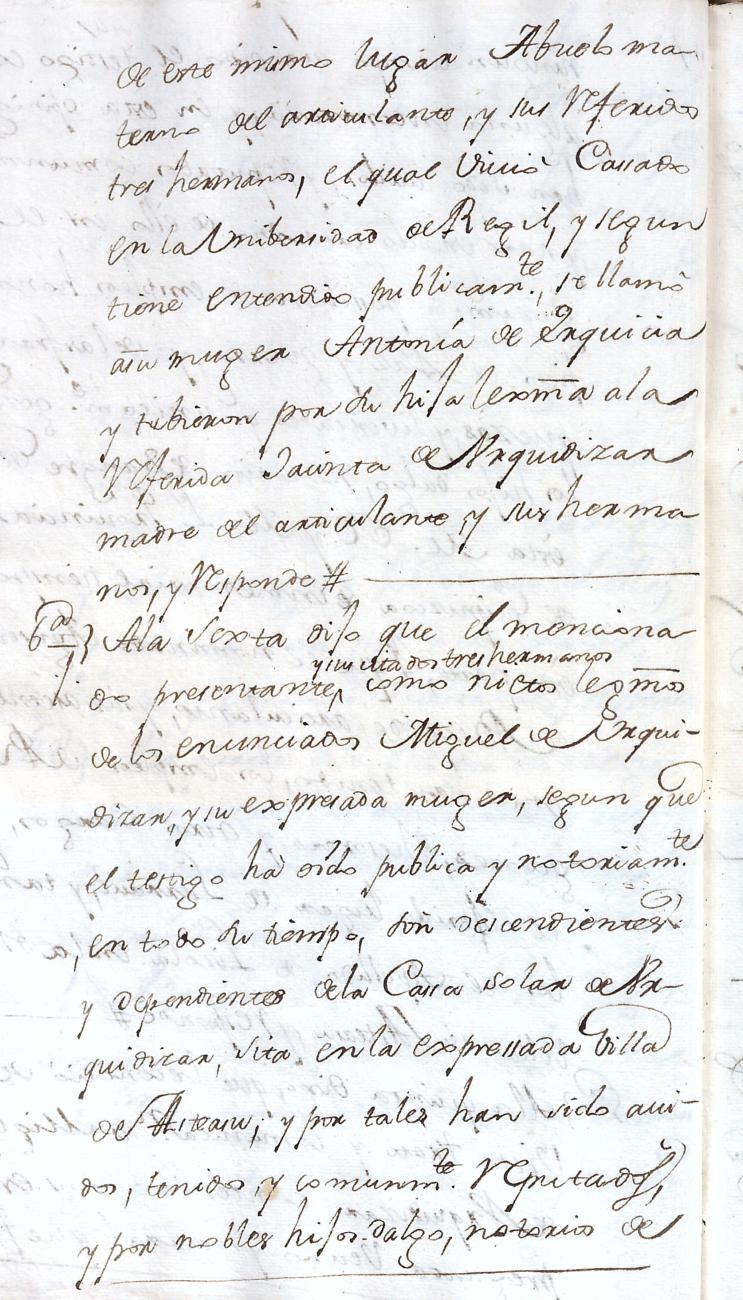 de este mismo lugar Abuelo ma-
terno del articulante, y sus Rferidos
tres hermanos, el qual vivió Cassado
en la Unibersidad de Regil, y segun
tiene entendido publicam.te, se llamó
a su muger Antonía de Erquicia
y tubieron por su hija lexma a la
Rferida Jacinta de Urquidizar
madre del articulante, y sus herma
nos, y Rsponde #
6a} A la sexta dijo que el menciona-
y sus citados tres hermanos
do presentante, como nietos legmos
de los enunciados Miguel de Urqui-
dizar, y su expresada muger, segun que
el testigo ha oído publica y notoriam.te
en todo su tiempo, son descendientes
y dependientes de la Cassa solar de Ur-
quidizar, sita en la expressada Villa
de Asteasu, y por tales han sido avi-
dos, tenidos, y comunm.te Rputados,
y por nobles hijos.dalgo, notorios de